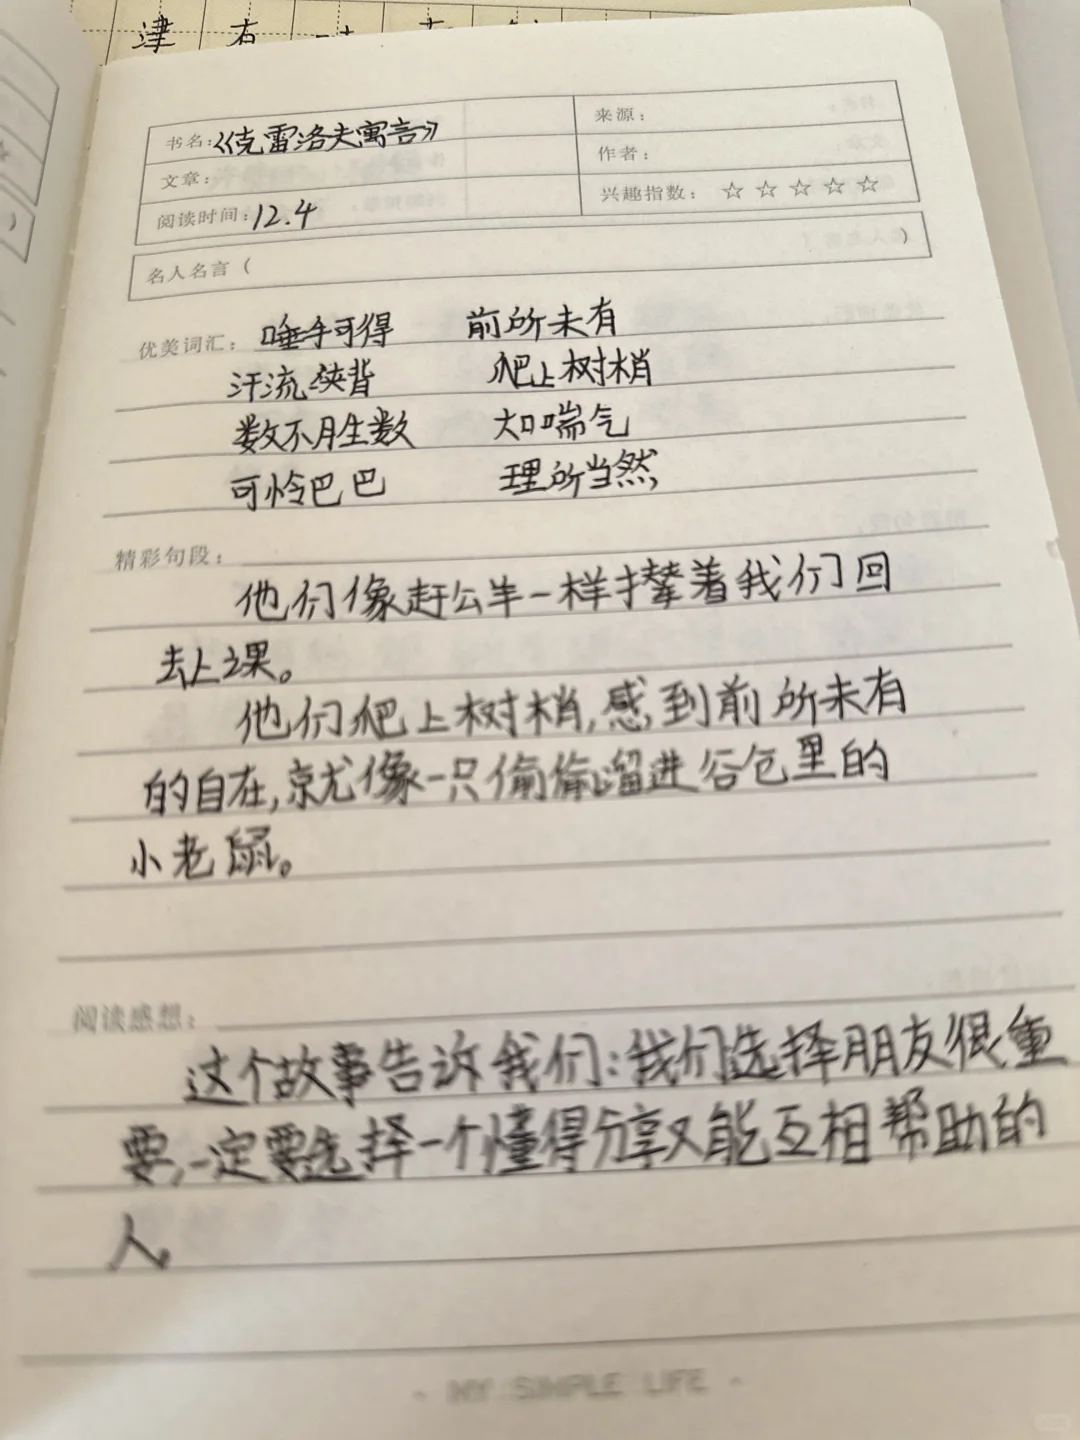 津 有
书名:《克雷洛夫寓言》 来源:
文章: 作者:
阅读时间:12.4 兴趣指数: ☆ ☆ ☆ ☆ ☆
名人名言( )
优美词汇: 唾手可得 前所未有
汗流浃背 爬上树梢
数不胜数 大口喘气
可怜巴巴 理所当然
精彩句段:
他们像赶公羊一样撵着我们回
去上课。
他们爬上树梢,感到前所未有
的自在,就像一只偷偷溜进谷仓里的
小老鼠。
阅读感想:
这个故事告诉我们:我们选择朋友很重
要,一定要选择一个懂得分享又能互相帮助的
人。
- MY SIMPLE LIFE -